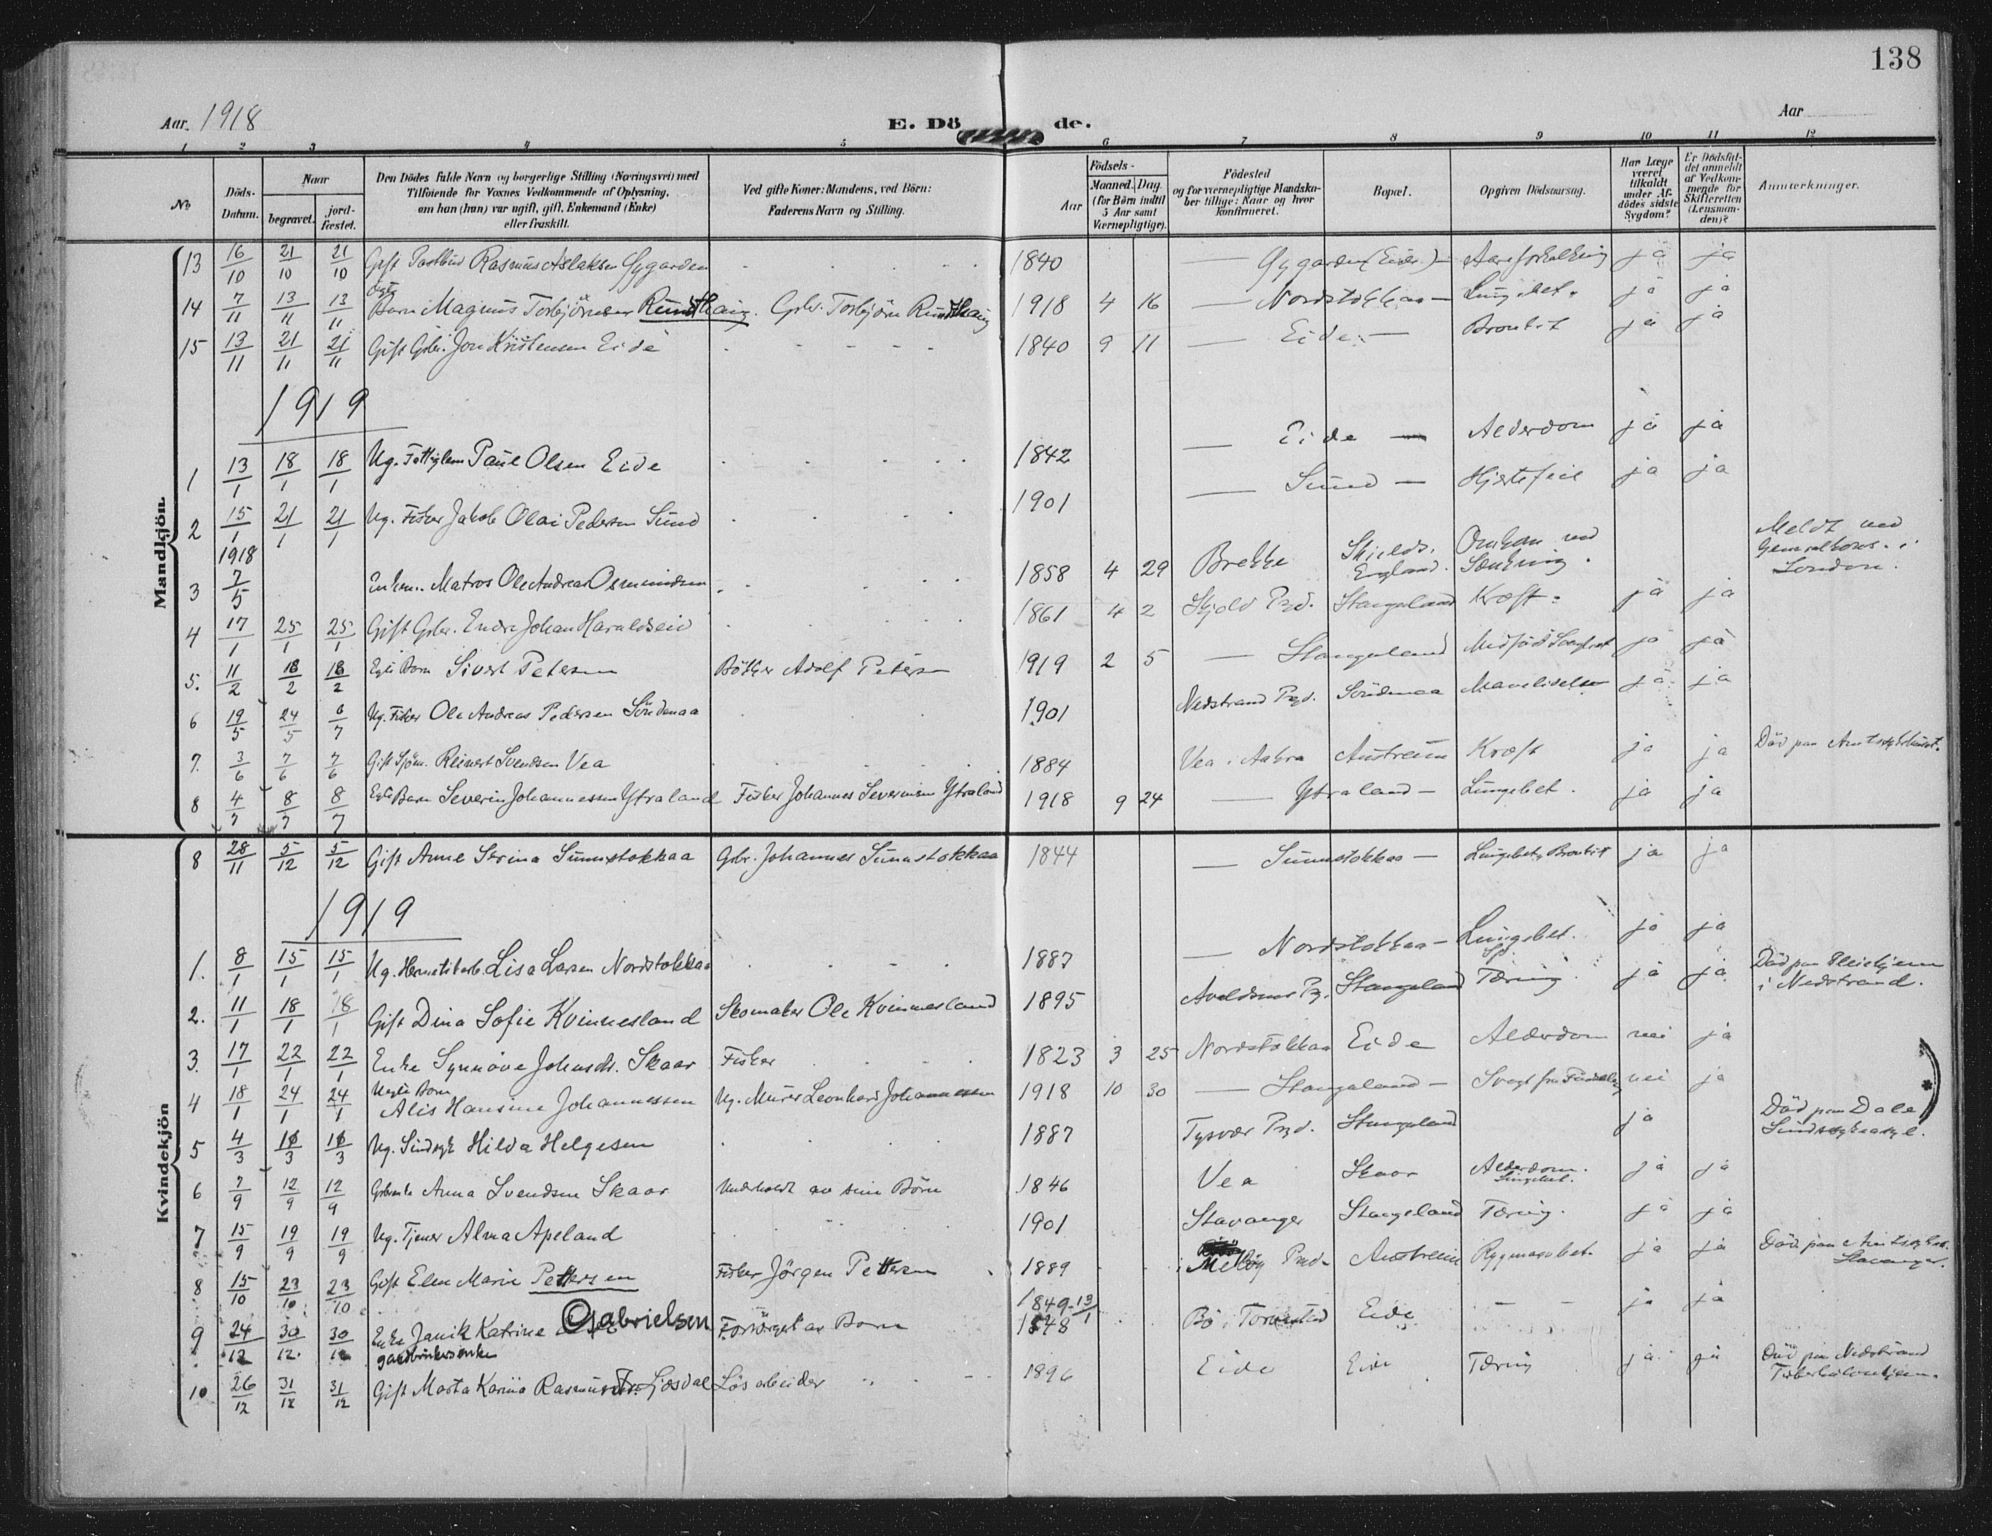 138
Aar. 1918
E. Dö de.
Aar
1 2 3 4 5 6 7 8 9 10 11 12
No
Döds-Datum.
Naar begravet. jord-fæstet.
Den Dödes fulde Navn og borgerlige Stilling (Næringsvei) med Tilföiende for Voxnes Vedkommende af Oplysning, om han (hun) var ugift, gift, Enkemand (Enke) eller fraskilt.
Ved gifte Koner: Mandens, ved Börn: Faderens Navn og Stilling.
Födsels- Aar Maaned. Dag. (for Börn indtil 5 Aar samt Værnepligtige).
Födested og for værnepligtige Mandska-ber tillige: Naar og hvor konfirmeret.
Bopæl.
Opgiven Dödsaarsag.
Har Læge været tilkaldt under Af-dödes sidste Sygdom?
Er Dödsfal-det anmeldt af Vedkom-mende for Skifteretten (Lensman-den)?
Anmærkninger.
Mandkjön.
13 16/10 21/10 21/10 Gift Postbud Rasmus Aslaksen Gygarden 1840 — Gygarden (Eide) — Aareforkalkning ja ja
14 7/11 13/11 13/11 Egte Barn Magnus Torbjörnsen Rundhaug. Gbr. Torbjörn Rundhaug 1918 4 16 — Nordstokkaa — Lungebet. ja ja
15 13/11 21/11 21/11 Gift Gbr. Jon Kristensen Eide 1840 9 11 — Eide — Bronkit ja ja
1919
1 13/1 18/1 18/1 Ug. Fattiglem Paul Olsen Eide 1842 — Eide — Alderdom ja ja
2 15/1 21/1 21/1 Ug. Fisker Jakob Olai Pedersen Sund 1901 — Sund — Hjertefeil ja ja
3 1918 7/5 Enkem. Matros Ole Andreas Osmundsen 1858 4 29 Brekke Skjelds. England. Omkom ved Sænkning. Meldt ved Generalkons. i London.
4 17/1 25/1 25/1 Gift Gbr. Endre Johan Haraldseid 1861 4 2 Skjold Pgd. Stangeland Kræft. ja ja
5. 11/2 18/2 18/2 Egte Barn Sivert Petersen Bötker Adolf Petersen 1919 2 5 — Stangeland Medfödt Svaghet ja ja
6 19/5 24/5 6/7 Ug. Fisker Ole Andreas Pedersen Söndenaa 1901 Nedstrand Pgd. Söndenaa Mavelidelse ja ja
7. 3/6 7/6 7/6 Gift Sjöm. Reinert Svendsen Vea 1884 Vea i Aakra Austreim Kræft ja ja Död paa Amtssykehuset.
8 4/7 8/7 8/7 Egte Barn Severin Johannessen Ytraland Fisker Johannes Severinsen Ytraland 1918 9 24 — Ytraland — Lungebet. ja ja
Kvindekjön
8 28/11 5/12 5/12 Gift Anne Serina Sunnstokkaa Gbr. Johannes Sunnstokkaa 1844 — Sunnstokkaa — Lungebet, Bronkit ja ja
1919
1. 8/1 15/1 15/1 Ug. Hermetikarb. Lisa Larsen Nordstokkaa 1887 — Nordstokkaa — Lungebet. ja ja
2. 11/1 18/1 18/1 Gift Dina Sofie Kvinnesland Skomaker Ole Kvinnesland 1895 Avaldsnes Pg. Stangeland Tæring. ja ja Död paa Pleiehjem i Nedstrand.
3. 17/1 22/1 22/1 Enke Synnöve Johnsdt. Skaar Fisker 1823 3 25 Nordstokkaa Eide Alderdom nei ja
4 18/1 24/1 24/1 Uegte Barn Alis Hansine Johannessen Ug. Murer Leonhard Johannessen 1918 10 30 — Stangeland — Svagt fra Födselen nei ja
5 4/3 18/3 18/3 Ug. Sindsyk Hilda Helgesen 1887 Tysvær Pgd. Stangeland ja Död paa Dale Sindssykeasyl.
6 7/9 12/9 12/9 Gbrenke Anna Svendsen Skaar Underholdt av sine Börn 1846 Vea Skaar Alderdom. Lungebet. ja ja
7 15/9 19/9 19/9 Ug. Tjener Alma Apeland 1901 Stavanger Stangeland Tæring. ja ja
8 15/10 23/10 23/10 Gift Elen Marie Pettersen Fisker Jörgen Pettersen 1889 Melöy Pgd. Austreim Rygmargsbet. ja ja Död paa Amtssykeh. Stavanger.
9 24/12 30/12 30/12 Enke Janik Katrine Gabrielsen gaardbrukersenke Forsörget av Barn 1849-13/1 1848 Bö i Torvestad Eide ja ja
10 26/12 31/12 31/12 Gift Marta Karina Rasmusdtr. Gjesdal Lösarbeider 1896 Eide Eide Tæring ja ja Död paa Nedstrand Tuberkulosehjem.